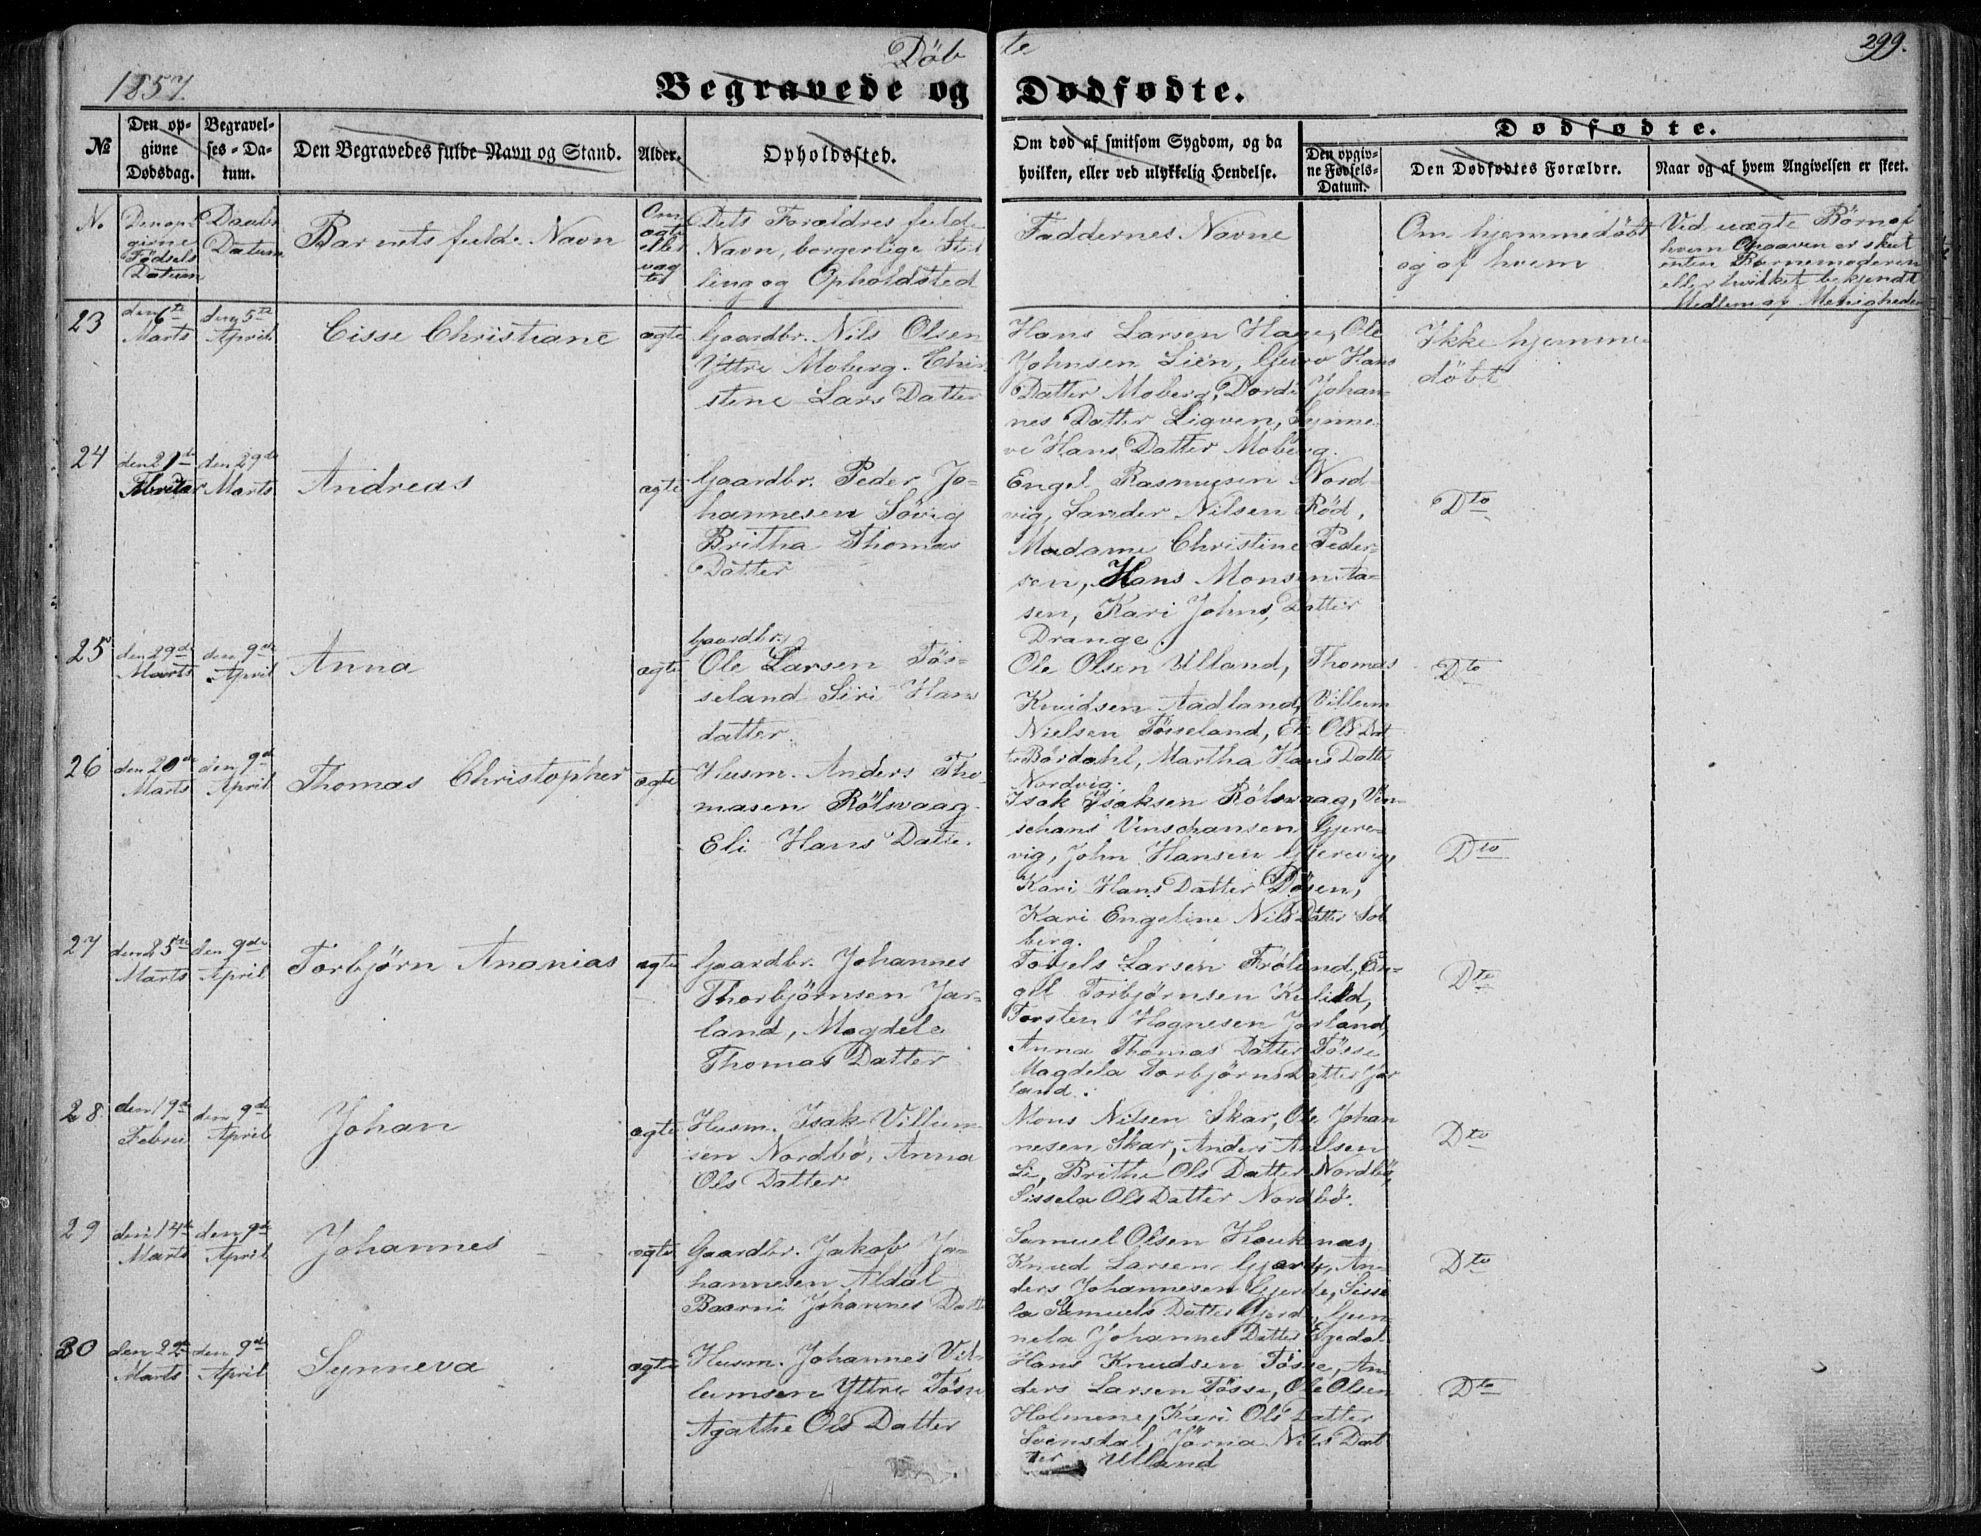 Döbte
299.
1857.
Begravede og Dødfødte.
№
Den opgivne Dødsdag.
Begravelses-Datum.
Den Begravedes fulde Navn og Stand.
Alder.
Opholdssted.
Om død af smitsom Sygdom, og da hvilken, eller ved ulykkelig Hendelse.
Dødfødte.
Den opgivne Fødsels-Datum.
Den Dødfødtes Forældre.
Naar og af hvem Angivelsen er skeet.
N.
Den opgivne Födsels Datum
Daabs Datum
Barnets fulde Navn
Om ægte eller uægte
Dets Forældres fulde
Navn, borgerlige Stil
ling og Opholdsted
Faddernes Navne
Om hjemmedöbt
og af hvem
Ved uægte Börn af
hvem Opgaven er skeet
enten Barnemoderen
eller hvilket bekjendt
Medlem af Menigheden
23
den 6te Marts
den 5te April
Cisse Christiane
ægte
Gaardbr. Nils Olsen
Yttre Moberg. Chri
stine Lars Datter
Hans Larsen Hage, Ole
Johnsen Lien, Guro Hans
Datter Moberg, Dorde Johan-
nes Datter Ligven, Synne-
ve Hans Datter Moberg.
Ikke hjemme
döbt
24
den 21de Februar
den 29de Marts
Andreas
ægte
Gaardbr. Peder Jo-
hannesen Sövig
Britha Thomas
Datter
Engel Rasmusen Nord-
vig, Sander Nilsen Röd,
Madame Christine Peder-
sen, Hans Monsen
sen, Kari Johns Datter
Drange.
Dto
25
den 29de Marts
den 9de April
Anna
ægte
Gaardbr.
Ole Larsen Tös-
seland Siri Hans
datter
Ole Olsen Ulland, Thomas
Knudsen Aadland, Villum
Nielsen Tösseland, Eli Ols Dat
ter Bördahl, Martha Hans Datter
Nordvig.
Dto
26
den 20de Marts
den 9de April
Thomas Christopher
ægte
Husm. Anders Tho-
masen Rölsvaag
Eli Hans Datte.
Isak Isaksen Rölsvaag, Vin-
schans Vinschansen Gjere-
vig, John Hansen Gjerevig,
Kari Hans Datter Dösen,
Kari Engeline Nils Datter Sol
berg.
Dto
27
den 25de Marts
den 9de April
Torbjörn Ananias
ægte
Gaardbr. Johannes
Thorbjörnsen Jar-
land, Magdela
Thomas Datter
Torjels Larsen Fröland, En-
gel Torbjörnsen Kulild,
Torsten Hognesen Jarland,
Anna Thomas Datter Tösse
Magdela Torbjörns Datter Jar
land.
Dto
28
den 19de Februa
den 9de April
Johan
ægte
Husm. Isak Villum-
sen Nordbö, Anna
Ols Datter
Mons Nilsen Skar, Ole Johan
nesen Skar, Anders
Li, Britha Ols Datter Nordbö,
Sissela Ols Datter Nordbö.
Dto
29
den 14de Marts
den 9de April
Johannes
ægte
Gaardbr. Jakob Jo-
hannesen Aldal
Baarni Johannes Datte
Samuel Olsen Houknas,
Knud Larsen Gjerde, An-
ders Johannesen Gjerde, Sisse
la Samuels Datter Gjerde, Gun-
nela Johannes Datter Egedal
Dto
30
den 22de Marts
den 9de April
Synneva
ægte
Husm. Johannes Vil-
lumsen Yttre Tösse
Agathe Ols Datter
Hans Knudsen Tösse, An
ders Larsen Tösse, Ole Olsen
Holmene, Kari Ols Datter
Svensdal, Jörna Nils Dat
ter Ulland
Dto